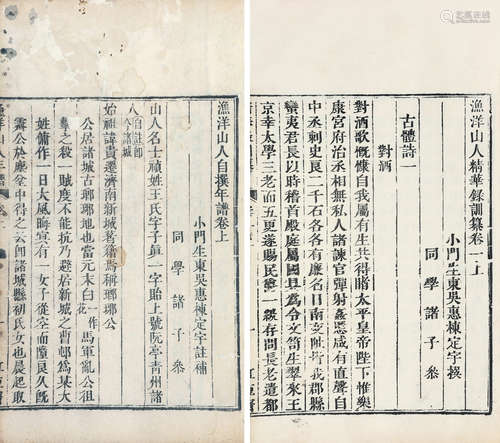 漁洋山人精華錄訓纂卷一上
小門生東吳惠棟定宇撰
同學諸子叅
古體詩一
對酒
對酒歌慨慷自我屬有生共得睹太平皇帝陛下惟樂
康宮府治丞相無私人諸諫官彈射姦慝咸有直聲自
中丞刺史良二千石各各有廉名日南交阯隸我郡縣
蠻夷君長以時稽首殿庭屬國具爲令文笥生翠來王
京幸太學三老而五更遂賜民爵一級存問長老遣都
漁洋山人自撰年譜卷上
小門生東吳惠棟定宇註補
同學諸子叅
山人名士禛姓王氏字子眞一字貽上號阮亭靑州諸
人自註卽今諸城
始祖諱貴遷濟南新城著籍爲稱瑯瑘公
公居諸城古瑯琊地也當元末白一作花馬軍亂公祖
之殺賊度不能抗乃避居新城之曹邨爲某大
姓傭作一日大風晦有一女子從空而墮良久旣
霽公於塵坌中得之云卽諸城縣初氏女也晨起取